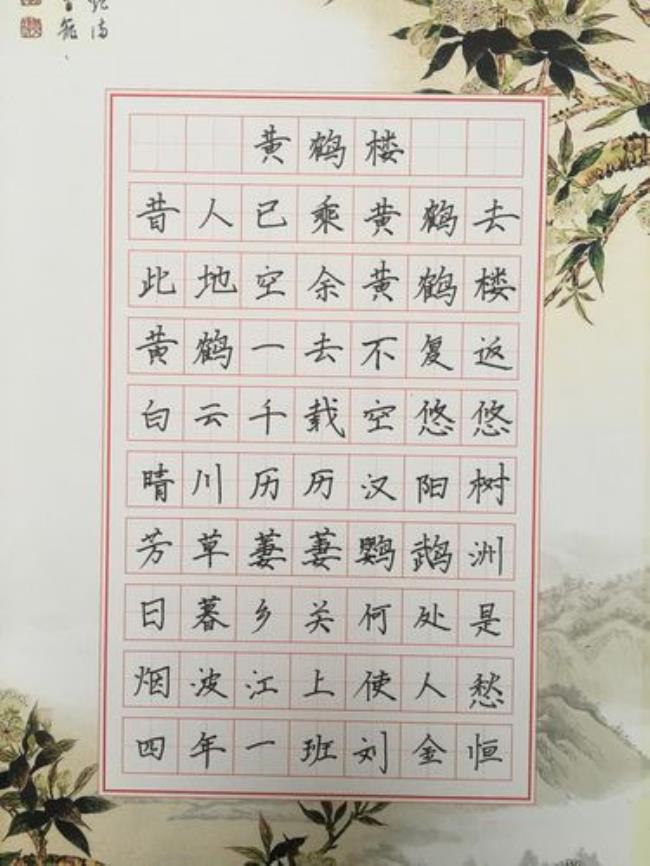 黄鹤楼
昔人已乘黄鹤去
此地空余黄鹤楼
黄鹤一去不复返
白云千载空悠悠
晴川历历汉阳树
芳草萋萋鹦鹉洲
日暮乡关何处是
烟波江上使人愁
四年一班刘金恒